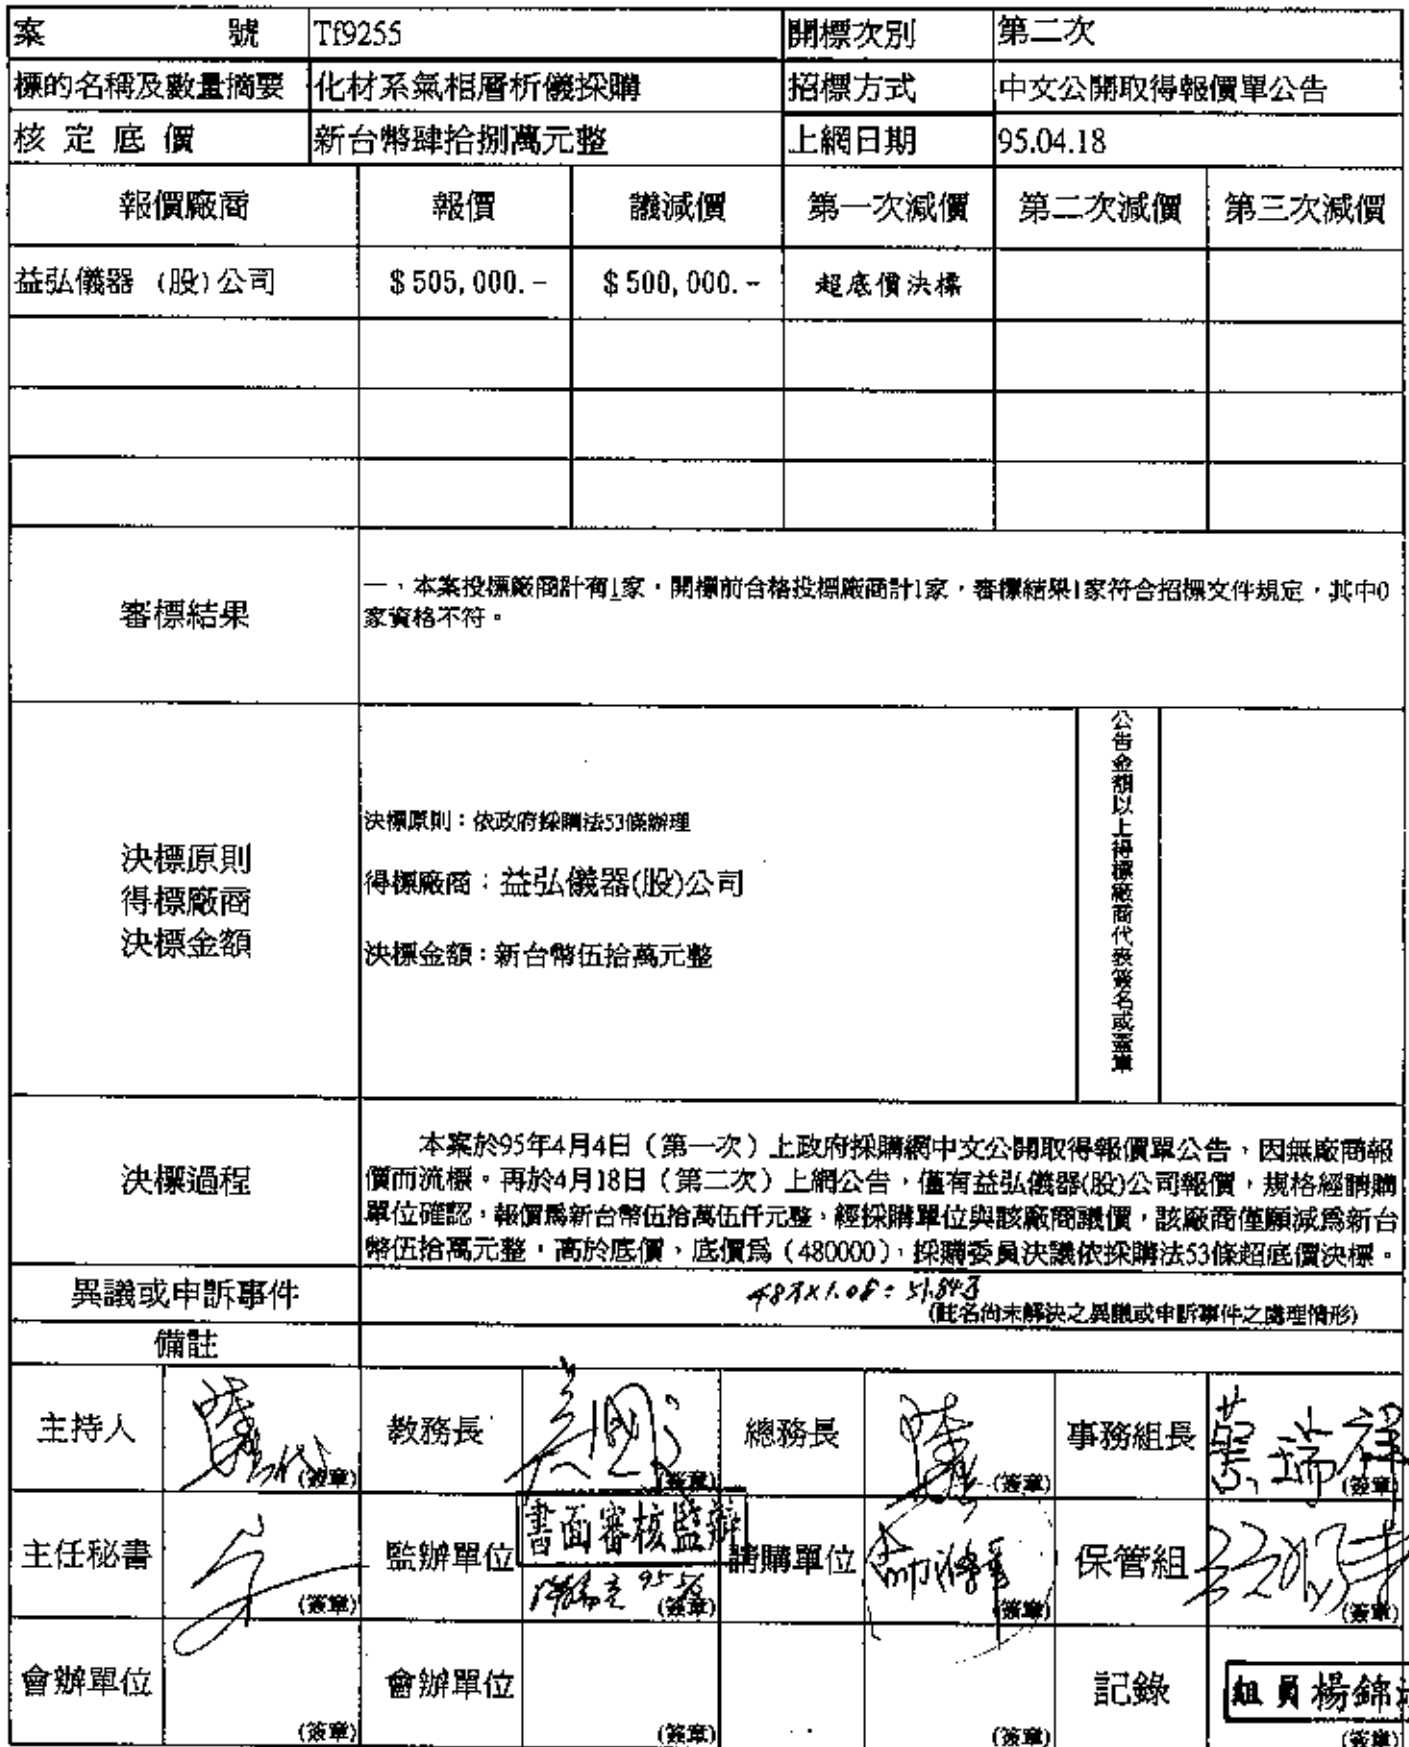 案號 Tf9255 開標次別 第二次
標的名稱及數量摘要 化材系氣相層析儀採購 招標方式 中文公開取得報價單公告
核定底價 新台幣肆拾捌萬元整 上網日期 95.04.18
報價廠商 報價 議減價 第一次減價 第二次減價 第三次減價
益弘儀器 (股)公司 $505,000.- $500,000.- 超底價決標
審標結果
一、本案投標廠商計有1家,開標前合格投標廠商計1家,審標結果1家符合招標文件規定,其中0
家資格不符。
決標原則
得標廠商
決標金額
決標原則:依政府採購法53條辦理
得標廠商:益弘儀器(股)公司
決標金額:新台幣伍拾萬元整
公告金額以上得標廠商代表簽名或蓋章
決標過程
本案於95年4月4日(第一次)上政府採購網中文公開取得報價單公告,因無廠商報
價而流標。再於4月18日(第二次)上網公告,僅有益弘儀器(股)公司報價,規格經請購
單位確認,報價為新台幣伍拾萬伍仟元整,經採購單位與該廠商議價,該廠商僅願減為新台
幣伍拾萬元整,高於底價,底價為(480000),採購委員決議依採購法53條超底價決標。
異議或申訴事件 48萬x1.08=51.84萬
(註名尚未解決之異議或申訴事件之處理情形)
備註
主持人 (簽章) 教務長 (簽章) 總務長 (簽章) 事務組長 (簽章)
主任秘書 (簽章) 監辦單位 書面審核監辦 (簽章) 請購單位 (簽章) 保管組 (簽章)
會辦單位 (簽章) 會辦單位 (簽章) (簽章) 記錄 組員楊錦 (簽章)